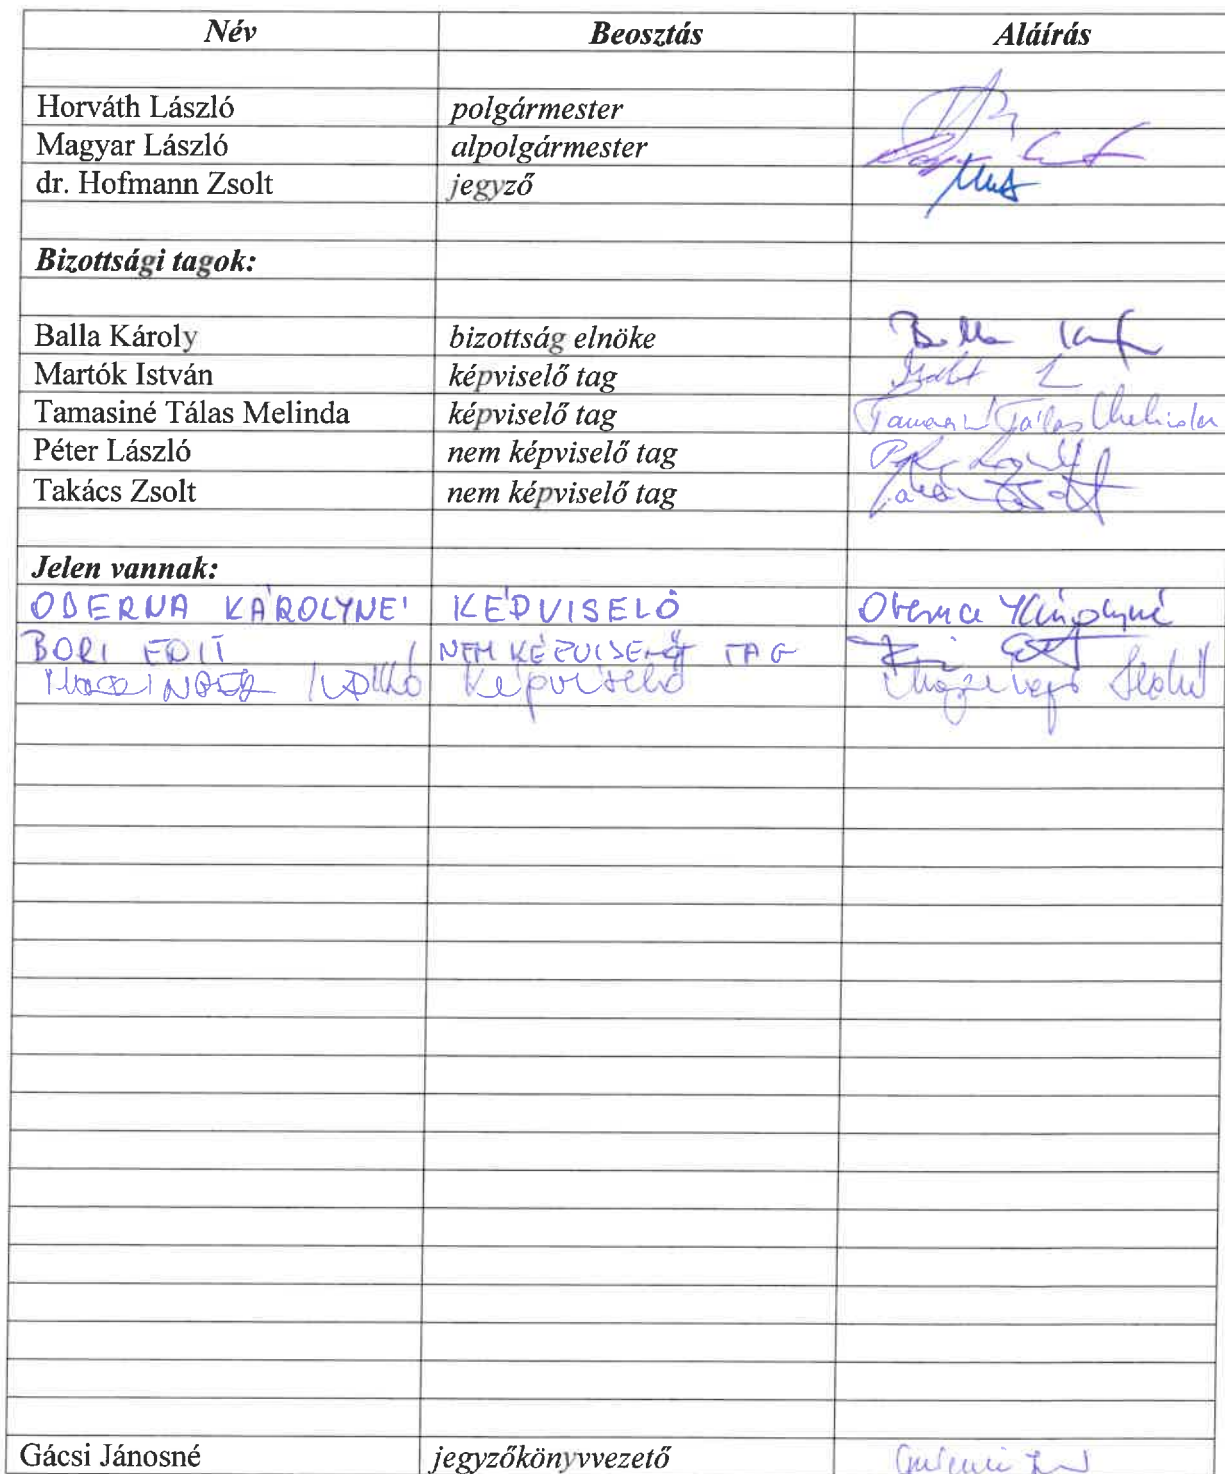 Név Beosztás Aláírás
Horváth László polgármester
Magyar László alpolgármester
dr. Hofmann Zsolt jegyző
Bizottsági tagok:
Balla Károly bizottság elnöke Balla
Martók István képviselő tag
Tamasiné Tálas Melinda képviselő tag Tamasiné Tálas Melinda
Péter László nem képviselő tag
Takács Zsolt nem képviselő tag Takács Zsolt
Jelen vannak:
ODERNA KÁROLYNÉ KÉPVISELŐ Oderna Károlyné
BORI EDIT NEM KÉPVISELŐ TAG
Képviselő
Gácsi Jánosné jegyzőkönyvvezető